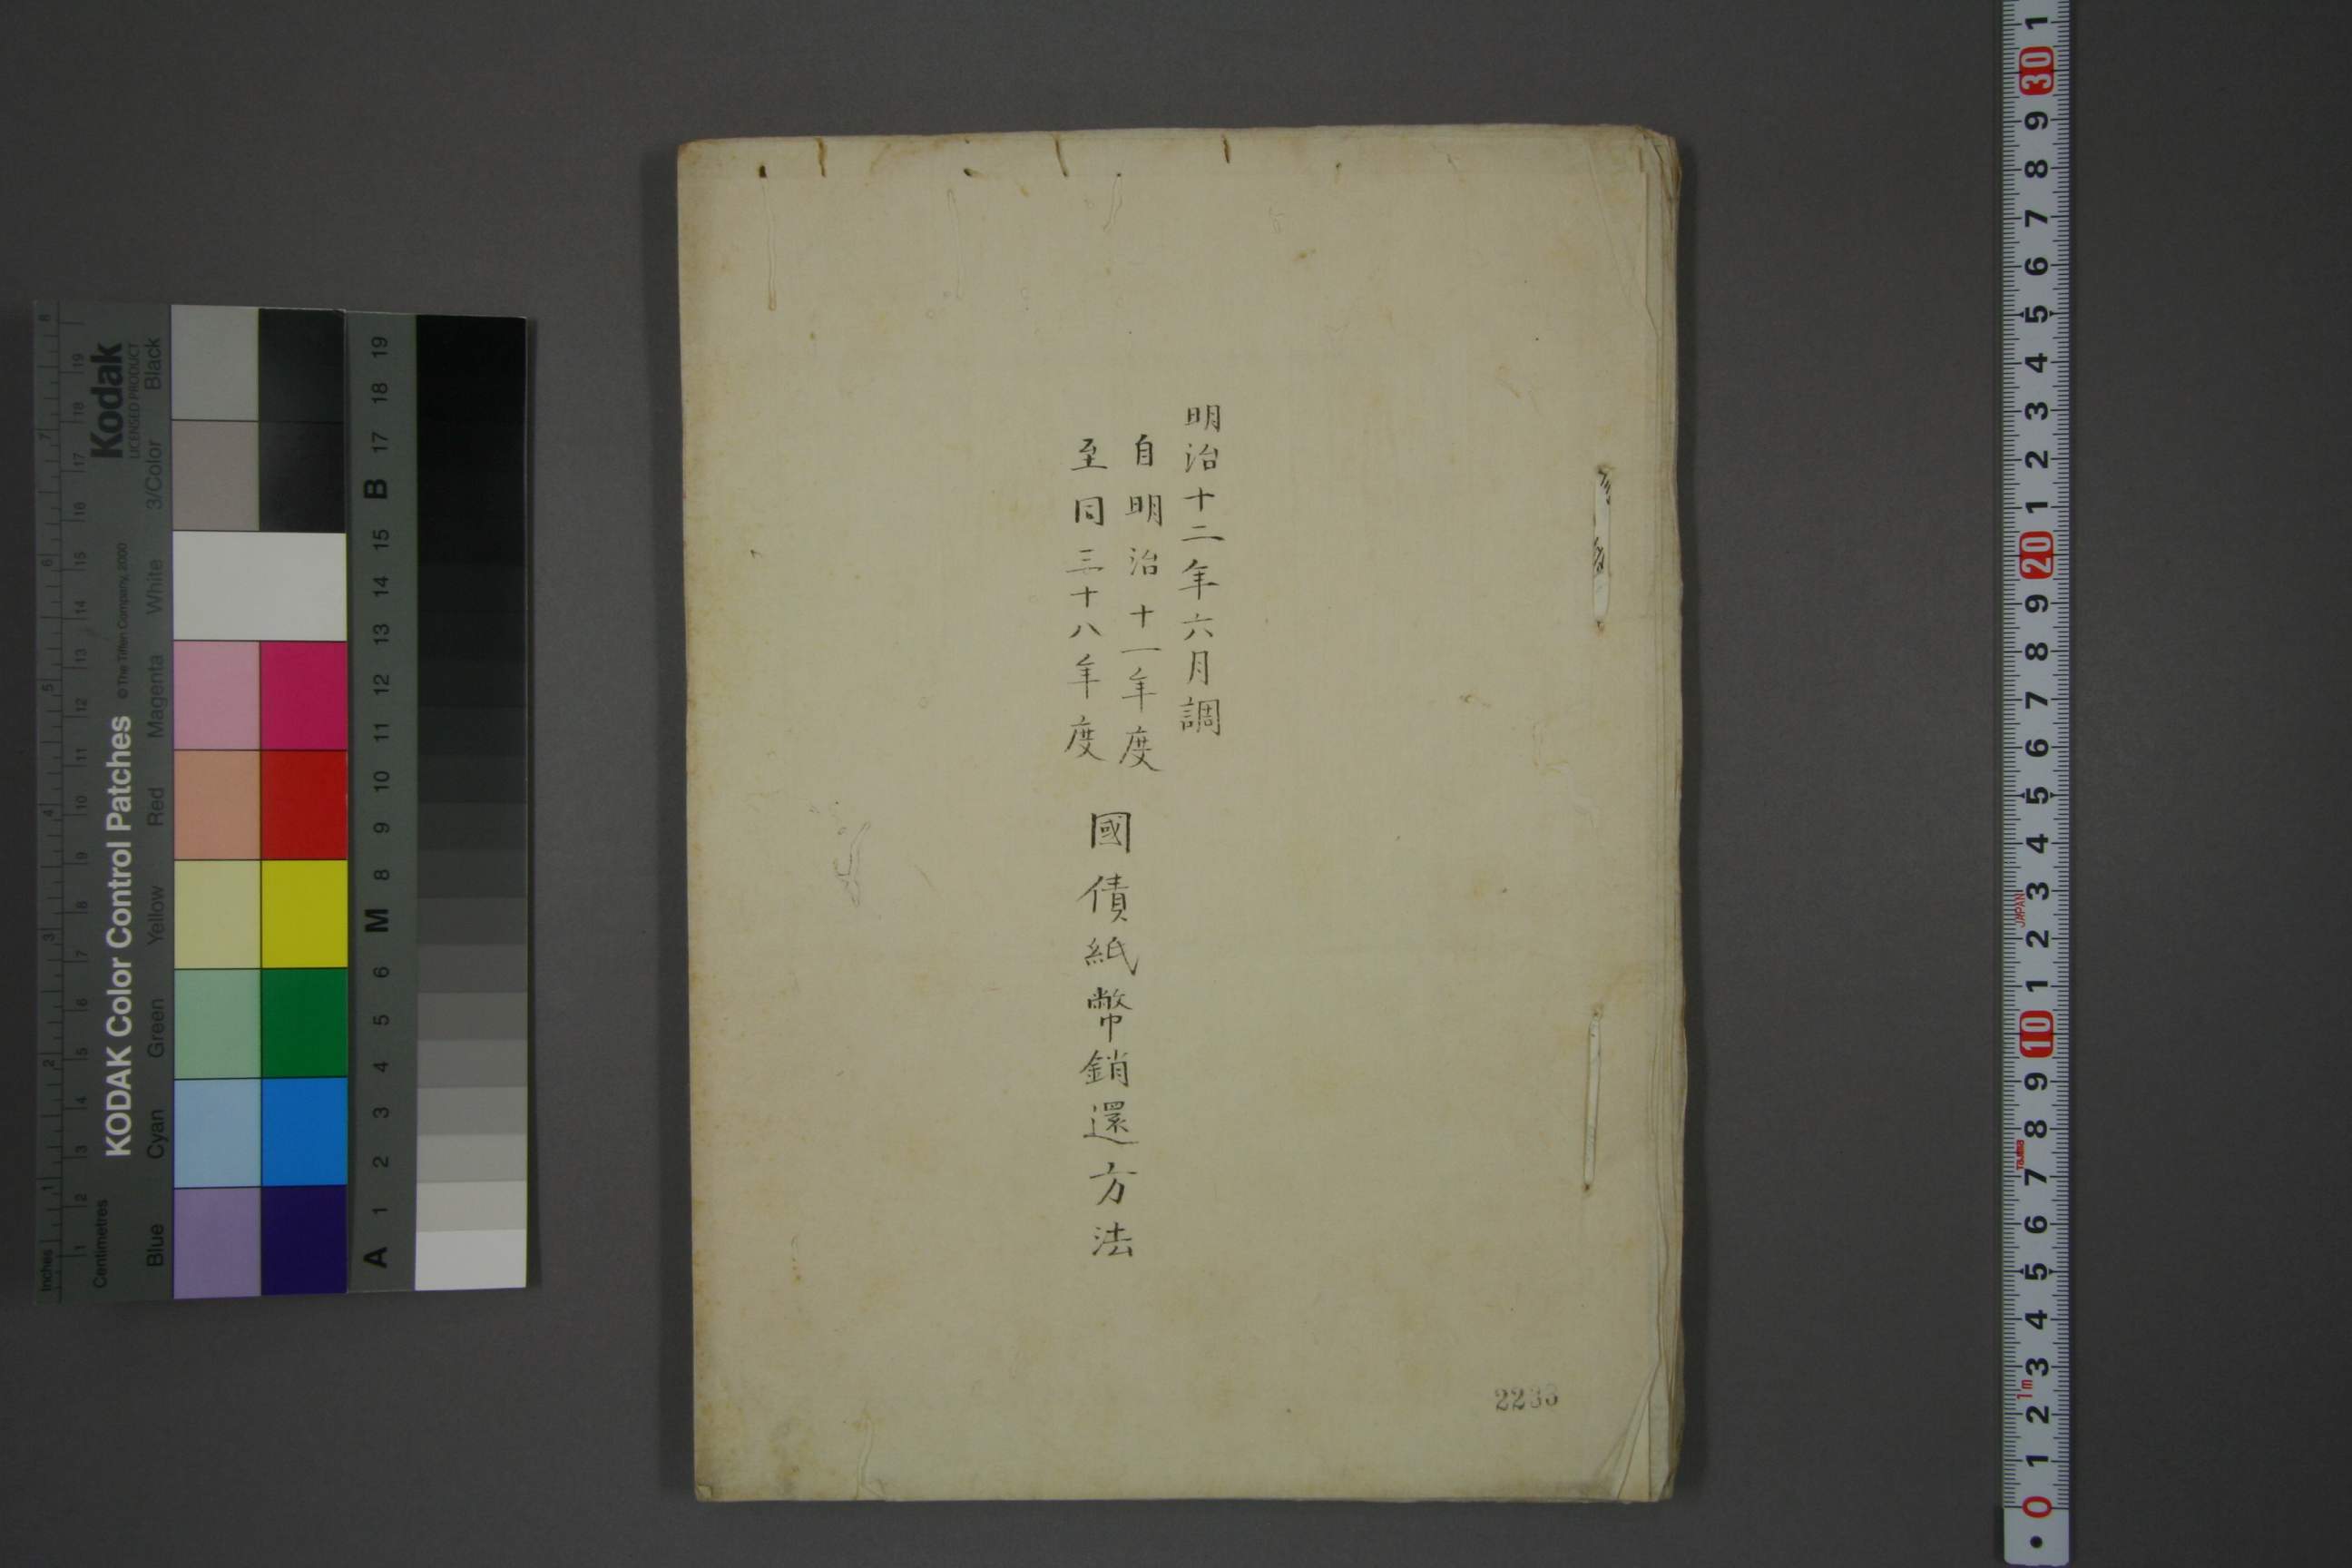 明治十二年六月調
自明治十一年度
至同三十八年度
國債紙幣銷還方法
KODAK Color Control Patches
© The Tiffen Company, 2000
Kodak
LICENSED PRODUCT
Inches
1 2 3 4 5 6 7 8
Centimetres
1 2 3 4 5 6 7 8 9 10 11 12 13 14 15 16 17 18 19
Blue Cyan Green Yellow Red Magenta White 3/Color Black
A 1 2 3 4 5 6 M 8 9 10 11 12 13 14 15 B 17 18 19
0 1 2 3 4 5 6 7 8 9 10 1 2 3 4 5 6 7 8 9 20 1 2 3 4 5 6 7 8 9 30 1
1m
Tajima
JAPAN